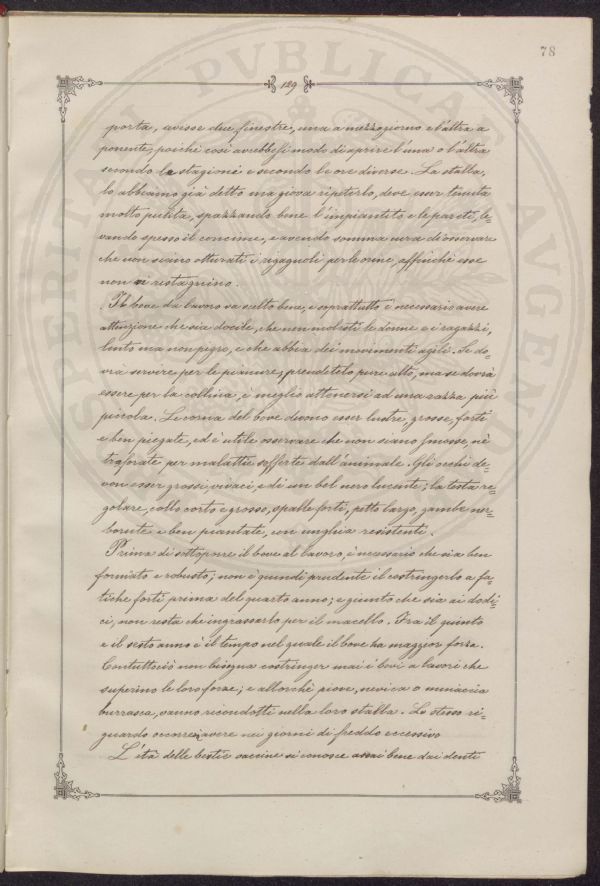 78
129
porta, avesse due finestre, una a mezzogiorno e l'altra a
ponente, poichè così avrebbesi modo di aprire l'una o l'altra
secondo le stagioni e secondo le ore diverse. La stalla,
lo abbiamo già detto ma giova ripeterlo, deve esser tenuta
molto pulita, spazzando bene l'impiantito e le pareti, le=
vando spesso il concime, e avendo somma cura di osservare
che non siano otturati i rigagnoli per le orine, affinchè esse
non vi ristagnino.
Il bove da lavoro va scelto bene, e soprattutto è necessario avere
attenzione che sia docile, che non molesti le donne e i ragazzi,
lento ma non pigro, e che abbia dei movimenti agili. Se do=
vrà servire per le pianure, prendetelo pure alto, ma se dovrà
essere per la collina, è meglio attenersi ad una razza più
piccola. Le corna del bove devono esser lustre, grosse, forti
e ben piegate, ed è utile osservare che non siano smosse, nè
traforate per malattie sofferte dall'animale. Gli occhi de=
von esser grossi, vivaci, e di un bel nero lucente; la testa re=
golare, collo corto e grosso, spalle forti, petto largo, gambe ner=
borute e ben piantate, con unghia resistenti.
Prima di sottoporre il bove al lavoro, è necessario che sia ben
formato e robusto; non è quindi prudente il costringerlo a fa=
tiche forti prima del quarto anno; e giunto che sia ai dodi=
ci, non resta che ingrassarlo per il macello. Fra il quinto
e il sesto anno è il tempo nel quale il bove ha maggior forza.
Contuttociò non bisogna costringer mai i bovi a lavori che
superino le loro forze; e allorchè piove, nevica o minaccia
burrasca, vanno ricondotti nella loro stalla. Lo stesso ri=
guardo occorre avere nei giorni di freddo eccessivo
L'età delle bestie vaccine si conosce assai bene dai denti